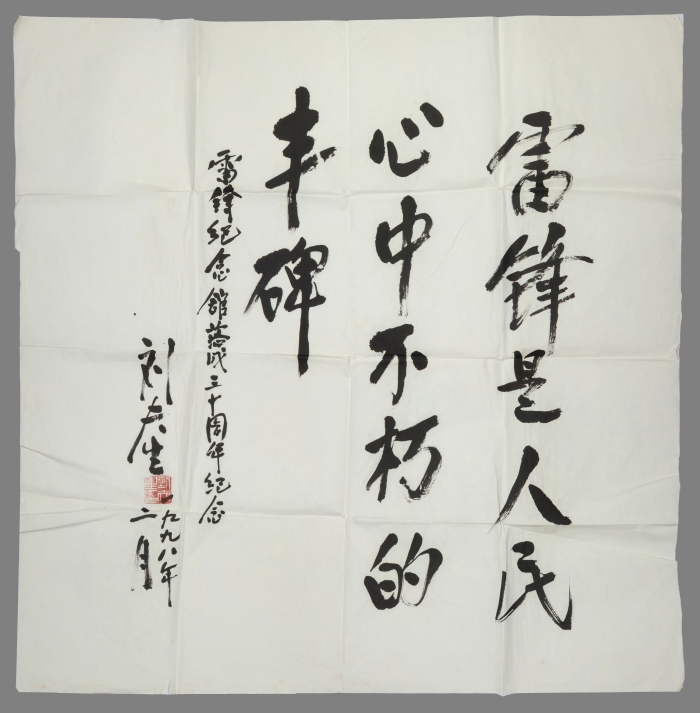 雷锋是人民
心中不朽的
丰碑
雷锋纪念舘落成三十周年纪念
刘
一九九八年
二月